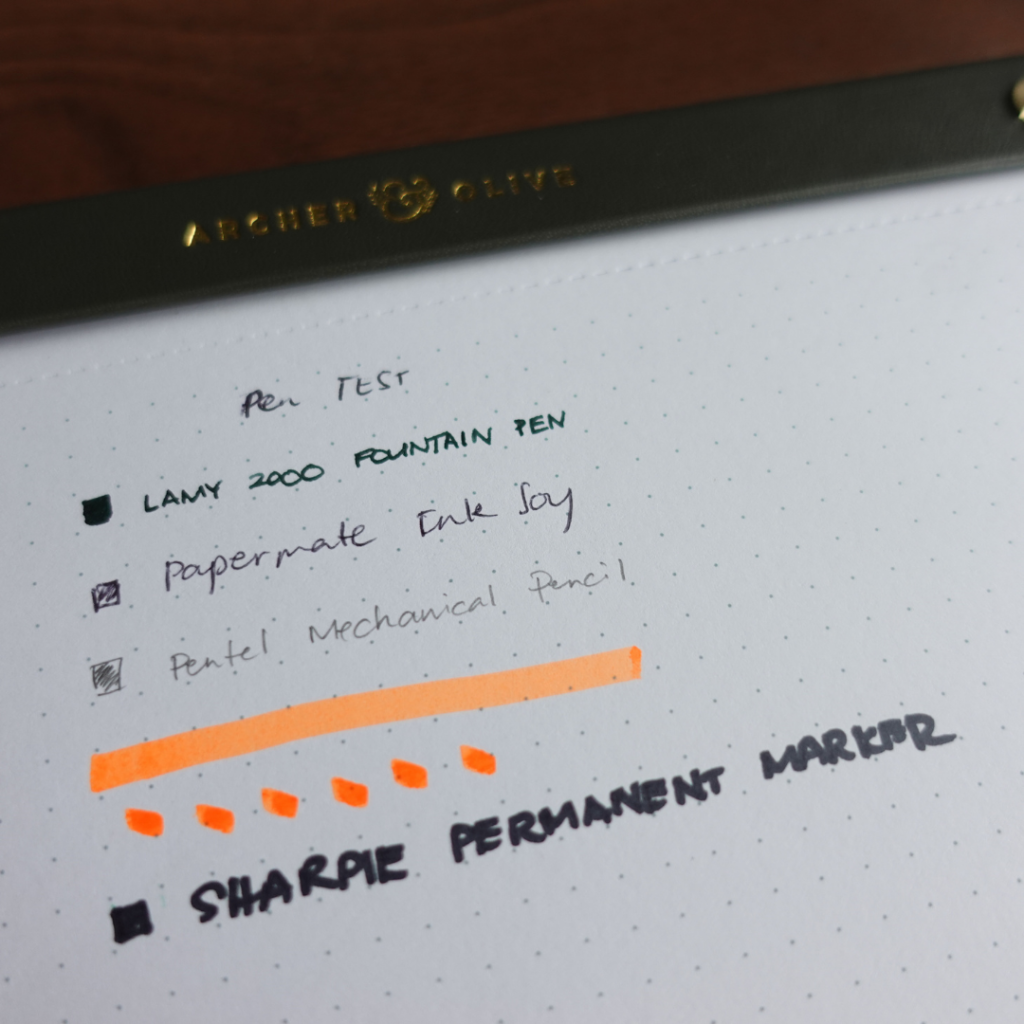 ARCHER & OLIVE
Pen TEST
LAMY 2000 FOUNTAIN PEN
Papermate Ink Joy
Pentel Mechanical Pencil
SHARPIE PERMANENT MARKER